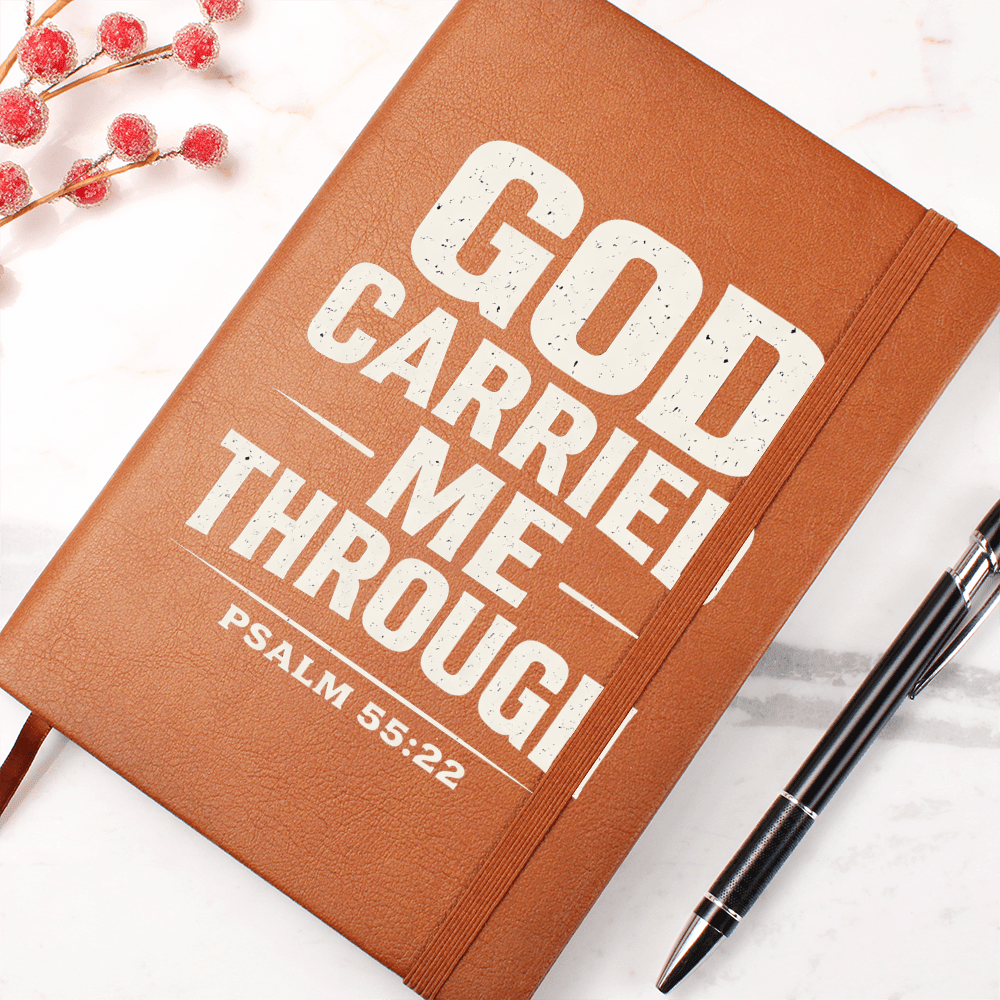 GOD
CARRIED
ME
THROUGH
PSALM 55:22